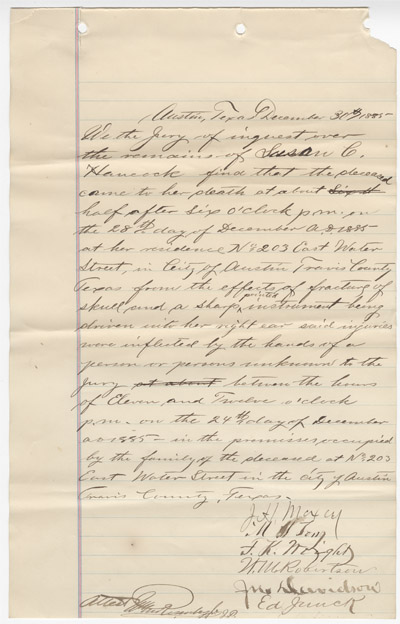 Austin, Texas December 31st 1885
We the Jury of inquest over
the remains of Susan C.
Hancock find that the deceased
came to her death at about Six
half after Six o'clock p.m. on
the 28th day of December A.D. 1885
at her residence No 203 East Water
Street, in City of Austin Travis County
Texas from the effects of fracture of
skull and a sharp pointed instrument being
driven into her right ear said injuries
were inflicted by the hands of a
person or persons unknown to the
Jury at about between the hours
of Eleven and Twelve o'clock
p.m. on the 24th day of December
AD 1885 - in the premises occupied
by the family of the deceased at No 203
East Water Street in the city of Austin
Travis County, Texas.
J. H. Maxey
T. K. Wright
W. M. Robertson
Jno Davidson
Ed
Attest